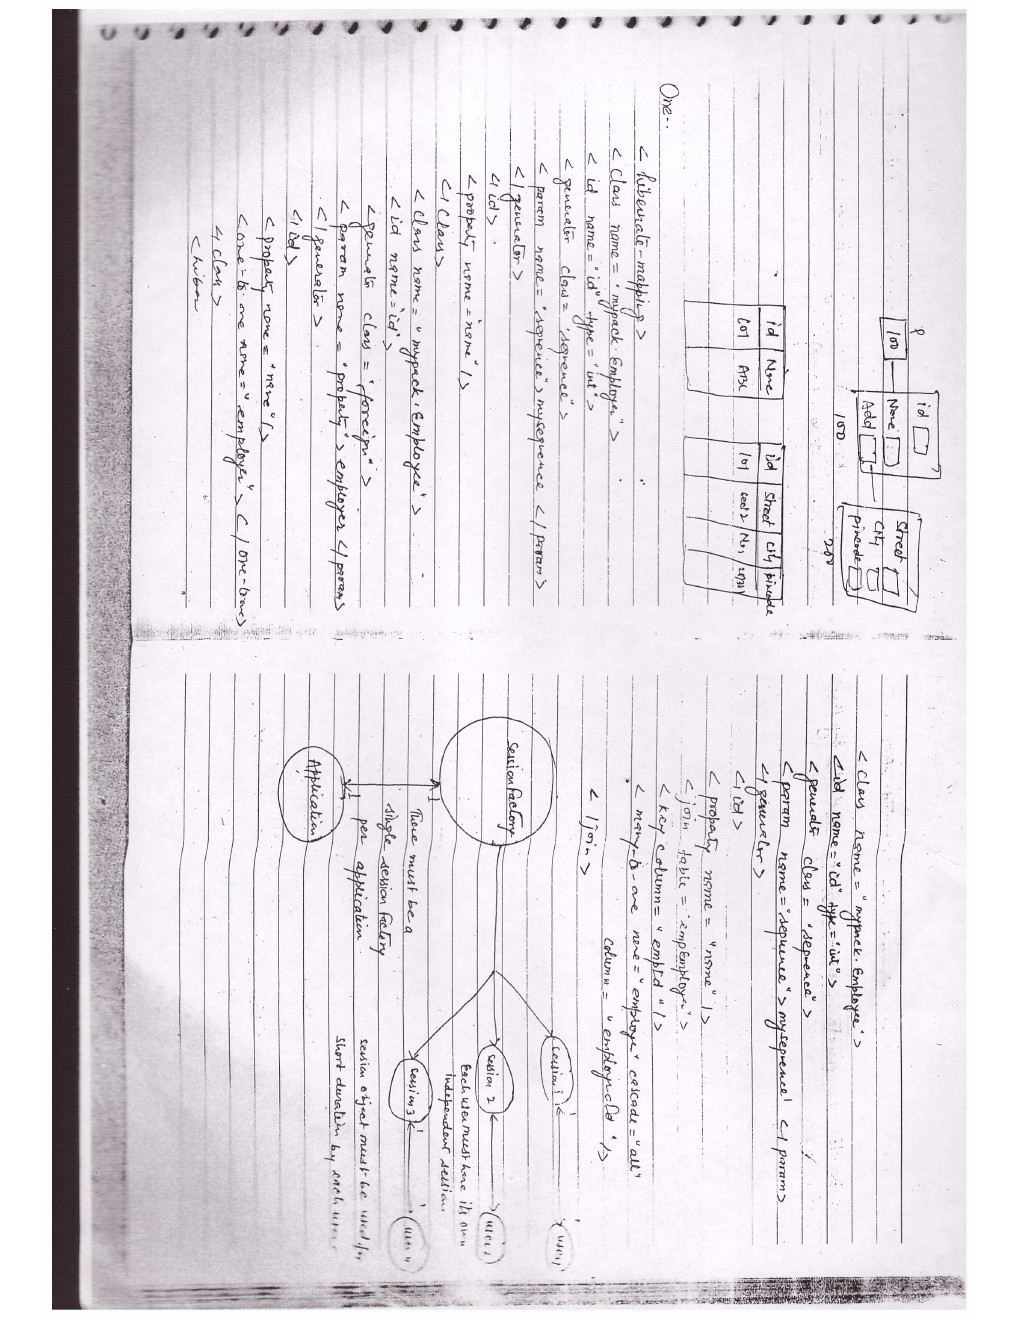 P
100
id
Name
Add
100
Street
City
Pincode
200
id Name
101 ABC
id Street City Pincode
101 sec12
One..
< hibernate-mapping>
< class name = "mypack.Employer">
< id name = "id" type = "int">
< generator class = "sequence">
< param name = "sequence"> mysequence </param>
</generator>
</id>
< property name = "name"/>
</class>
< class name = "mypack.Employee">
< id name = "id">
< generator class = "foreign">
< param name = "property"> employer </param>
</generator>
</id>
< property name = "name"/>
< one-to-one name = "employer"> </one-to-one>
</class>
</hiber
< class name = "mypack.Employee">
< id name = "id" type = "int">
< generator class = "sequence">
< param name = "sequence"> mysequence </param>
</generator>
</id>
< property name = "name"/>
< join table = "empEmployer">
< key column = "empId"/>
< many-to-one name = "employer" cascade = "all"
column = "employerId"/>
< /join>
Session factory
session 1
session 2
session 3
user 1
user 2
user n
Each user must have its own
independent session.
1
There must be a
single session factory
1 per application.
Application
session object must be used for
short duration by each user